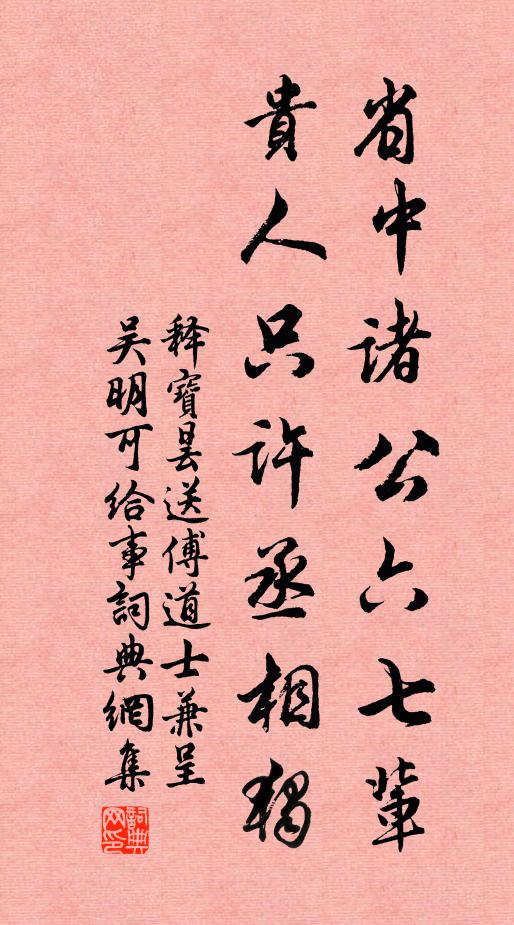 省中諸公六七輩
貴人只許丞相獨
释寶曇送傅道士兼呈
吴明可給事詞典網集
詞典网印